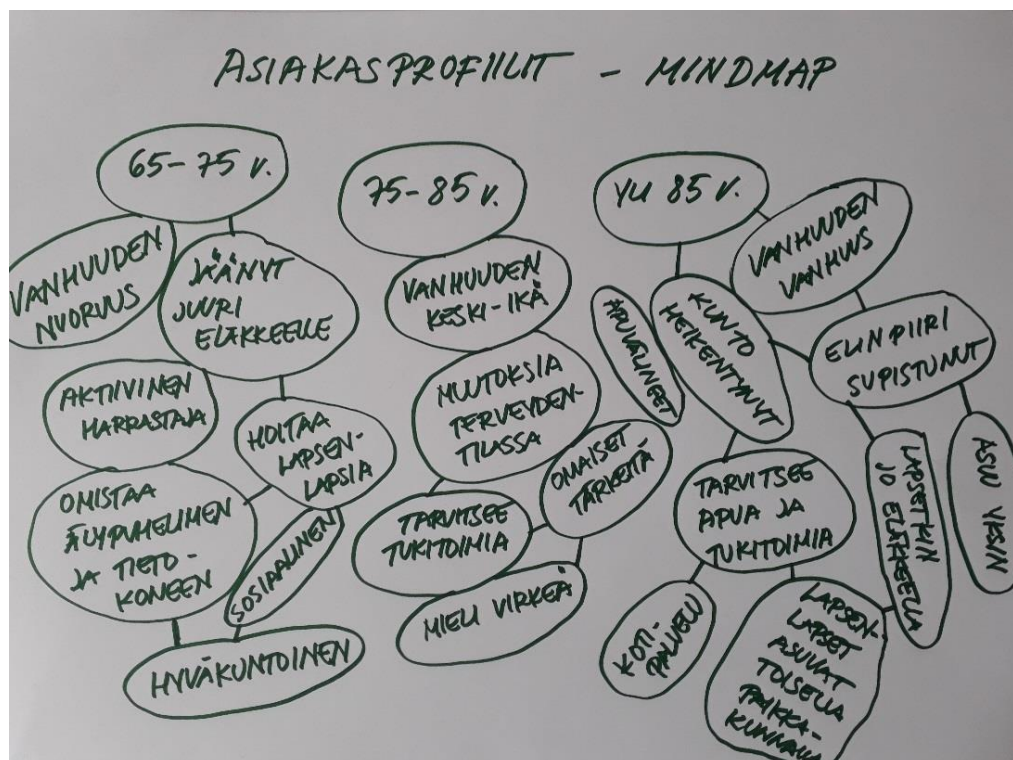 ASIAKASPROFIILIT - MINDMAP
65-75 V.
VANHUUDEN
NUORUUS
JÄÄNYT
JUURI
ELÄKKEELLE
AKTIIVINEN
HARRASTAJA
HOITAA
LAPSEN-
LAPSIA
OMISTAA
ÄLYPUHELIMEN
JA TIETO-
KONEEN
SOSIAALINEN
HYVÄKUNTOINEN
75-85 V.
VANHUUDEN
KESKI-IKÄ
MUUTOKSIA
TERVEYDEN-
TILASSA
OMAISET
TÄRKEITÄ
TARVITSEE
TUKITOIMIA
MIELI VIRKEÄ
YLI 85 V.
VANHUUDEN
VANHUUS
KUNTO
HEIKENTYNYT
APUVÄLINEET
ELINPIIRI
SUPISTUNUT
TARVITSEE
APUA JA
TUKITOIMIA
LAPSETKIN
JO ELÄKKEELLÄ
ASUU YKSIN
KOTI-
PALVELU
LAPSEN-
LAPSET
ASUVAT
TOISELLA
PAIKKA-
KUNNALLA